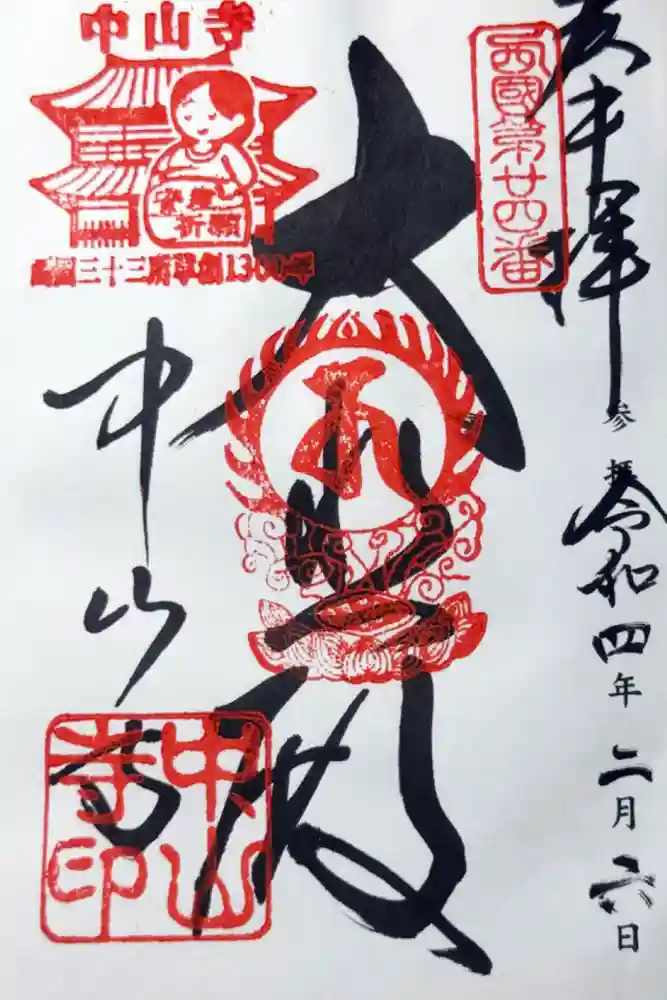 奉拝
西國第廿四番
参拝 令和四年二月六日
大悲殿
中山寺
中山寺印
中山寺
安産
祈願
西国三十三所草創1300年